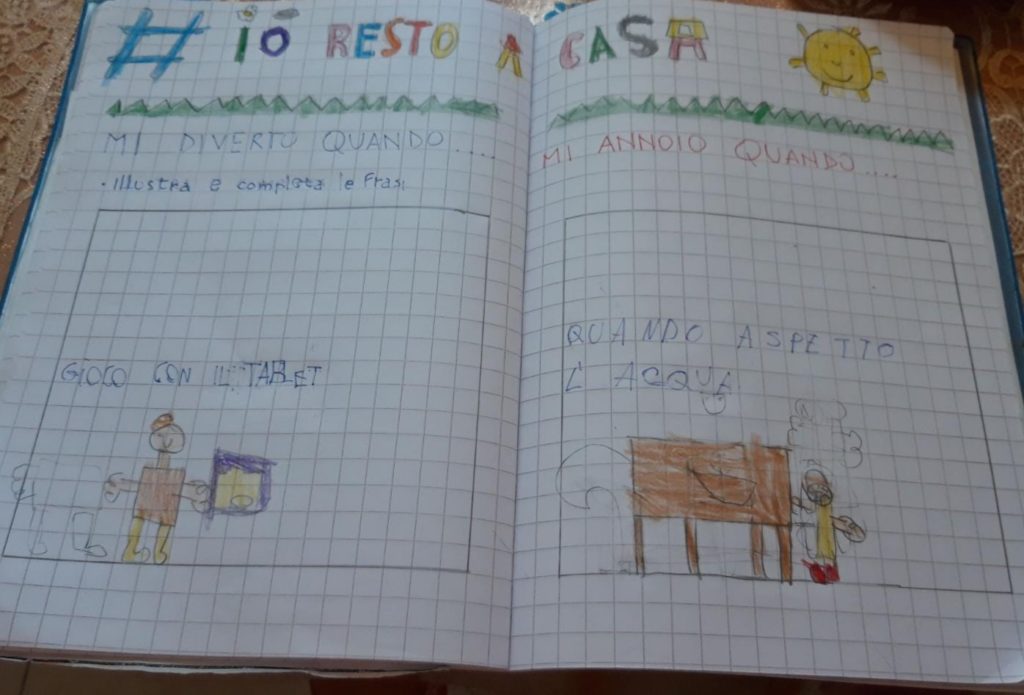 # IO RESTO A CASA
MI DIVERTO QUANDO....
• Illustra e completa le frasi
GIOCO CON IL TABLET
MI ANNOIO QUANDO....
QUANDO ASPETTO
L'ACQUA